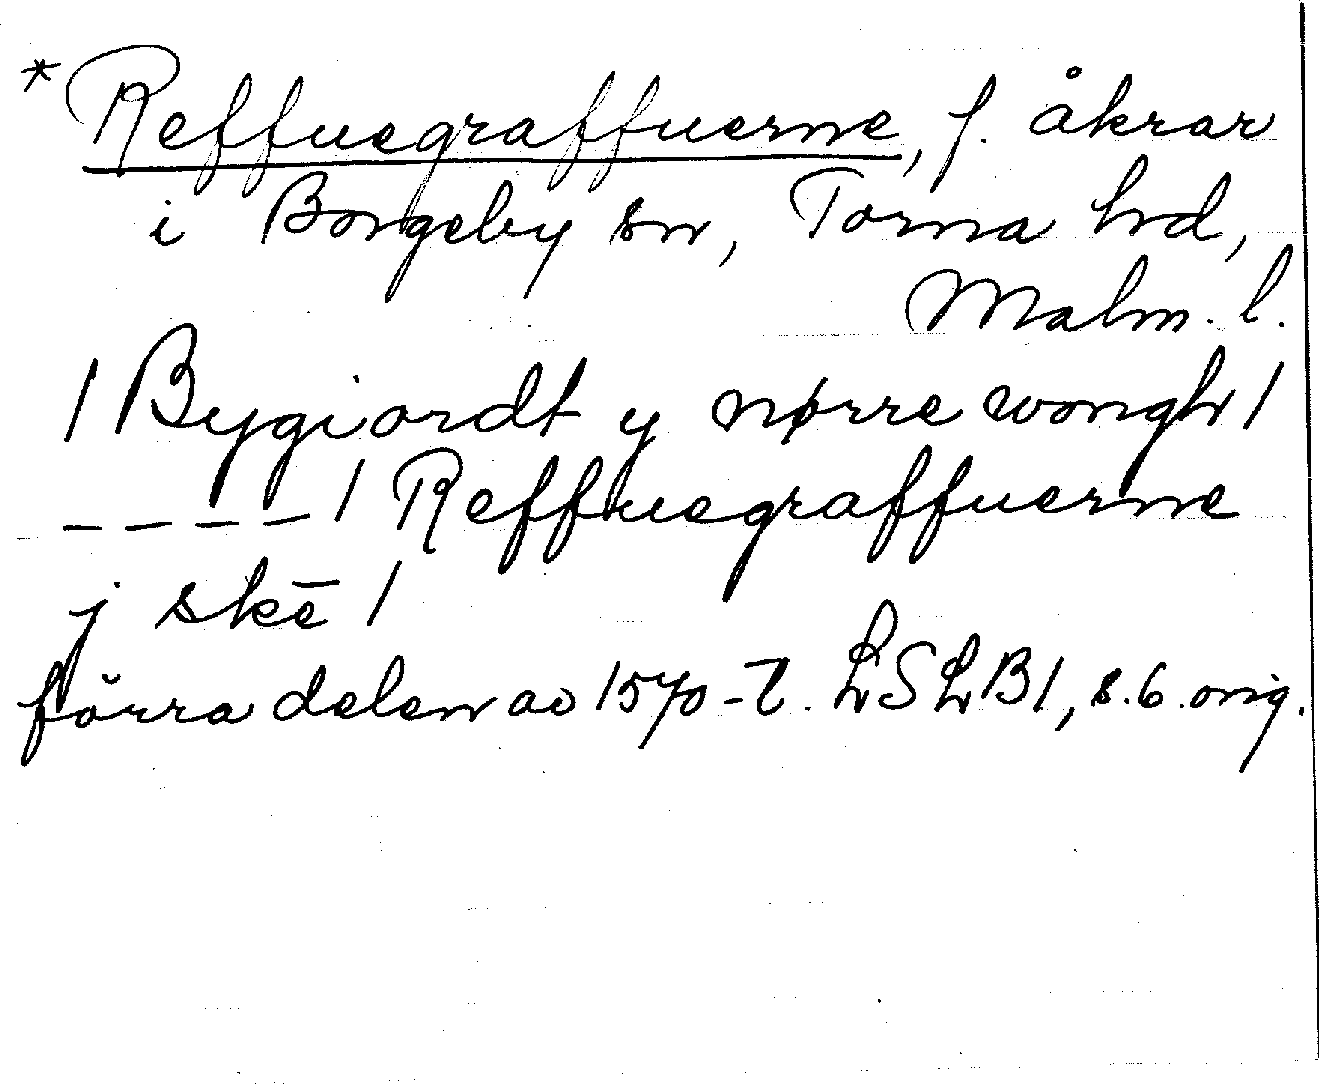 * Reffuegraffuerne, f. åkrar
i Borgeby sn, Torna hd,
Malm. l.
/ Bygiordt y nørre wongh /
_ _ _ _ / Reffuegraffuerne
j skē /
förra delen av 1570-t. LSLB1, s. 6. orig.